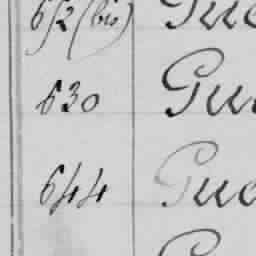 652 (bis) Gue
630 Gue
644 Gue